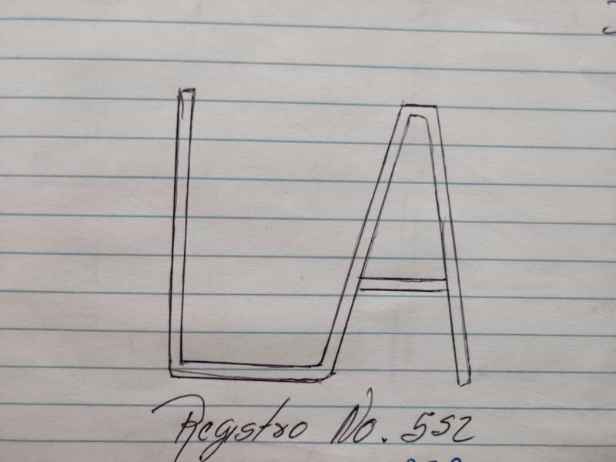 LA
Registro No. 552